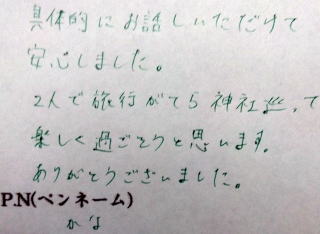 具体的にお話しいただけて
安心しました。
2人で旅行がてら神社巡って
楽しく過ごそうと思います。
ありがとうございました。
P.N(ペンネーム)
かな